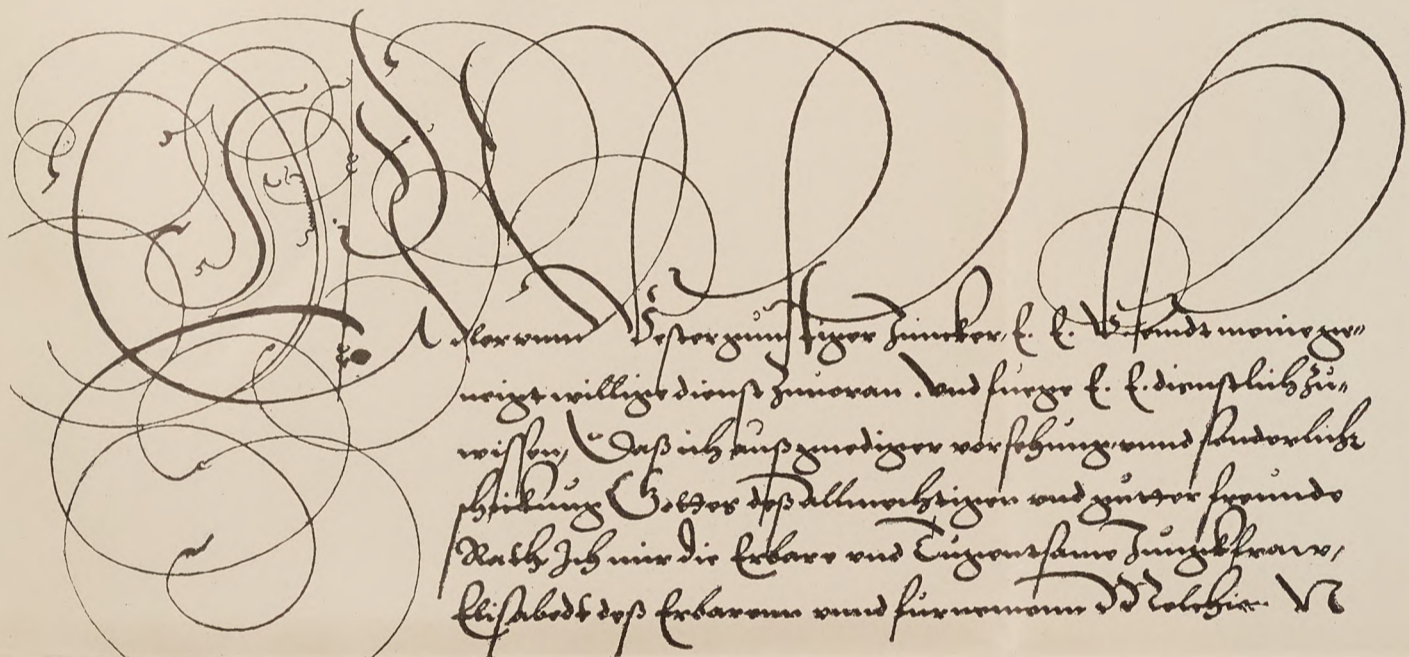 Edler vnnd Vester gunstiger Juncker, E. E. seindt meine ge-
neigt willige dienst zuuoran. Vnd fuege E. E. dienstlich zu-
wissen, Daß ich auß gnediger vorsehung vnnd sonderliche
schickung Gottes deß allmechtigen vnd gutter freunde
Rath, Ich mir die Erbare vnd Tugentsame Jungkfraw,
Elisabedt deß Erbarenn vnnd furnemenn Melchior N